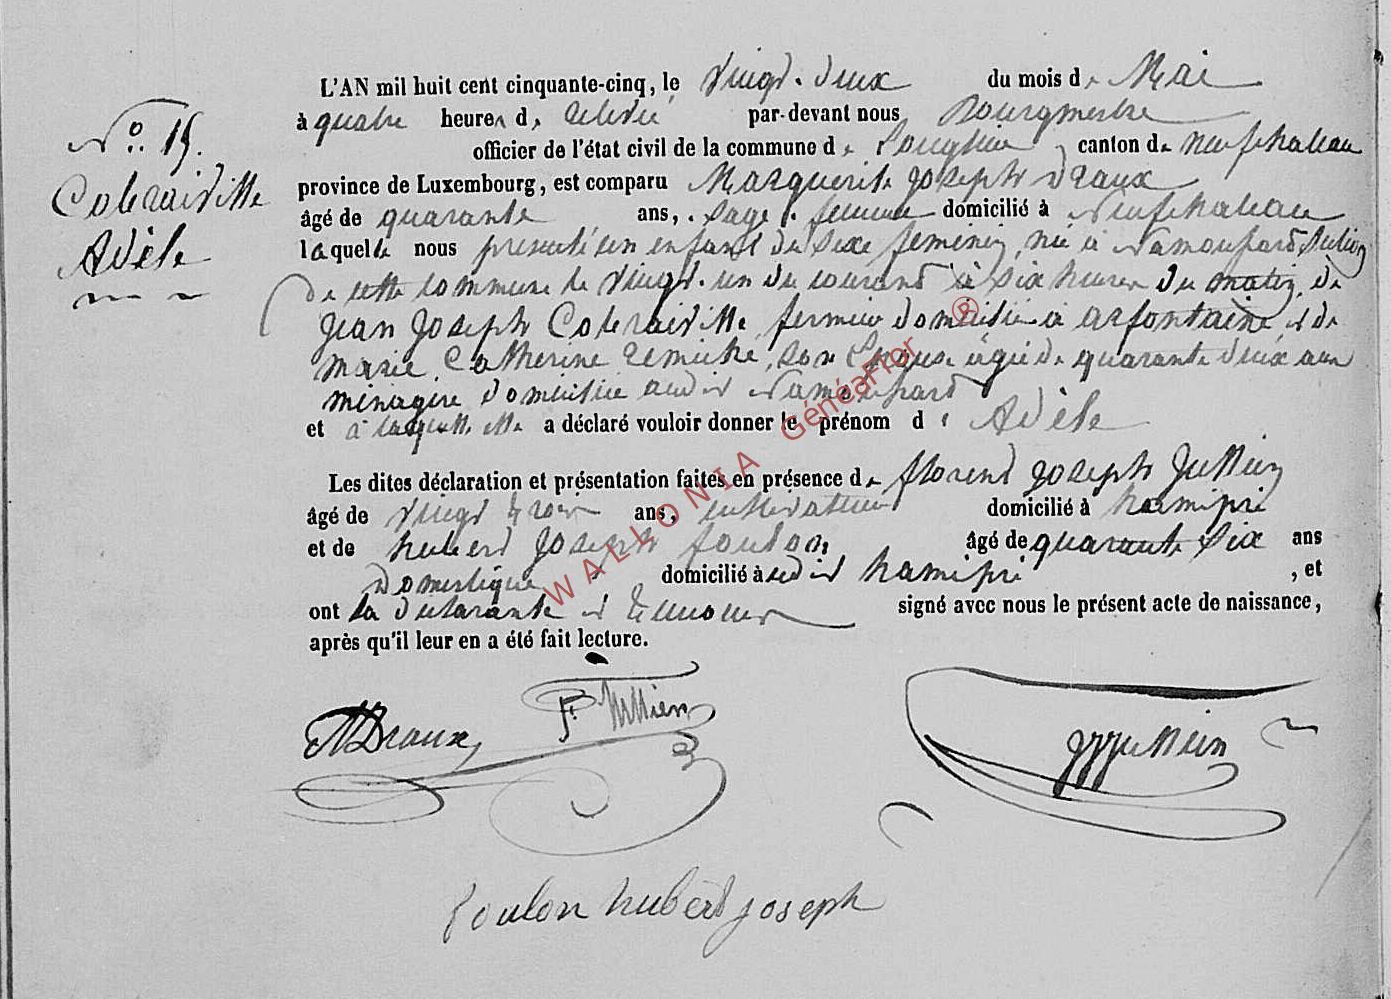 N.o 15.
Cobraiville
Adèle
L'AN mil huit cent cinquante-cinq, le vingt-deux du mois de Mai
à quatre heures de relevée par-devant nous Bourgmestre
officier de l'état civil de la commune de Longlier, canton de neufchateau
province de Luxembourg, est comparu Marguerite Joseph Draux
âgé de quarante ans, sage-femme domicilié à Neufchateau
laquelle nous présenté un enfant du sexe feminin, née à Namoussart, section
de cette commune le vingt-un du courant à six heures du matin, de
Jean Joseph Cobraiville, fermier domicilié à arfontaine et de
marie Catherine, son Epouse âgée de quarante deux ans
ménagère domiciliée audit Namoussart
et à laquelle elle a déclaré vouloir donner le prénom d' Adèle
Les dites déclaration et présentation faites en présence de florent Joseph Jullien
âgé de vingt trois ans, cultivateur domicilié à hamipré
et de hubert Joseph foulon, âgé de quarante six ans
domestique, domicilié audit hamipré, et
ont la déclarante et témoins signé avec nous le présent acte de naissance,
après qu'il leur en a été fait lecture.
MDraux F. Jullien Jullien
foulon hubert joseph
WALLONIA GénéaFror ®